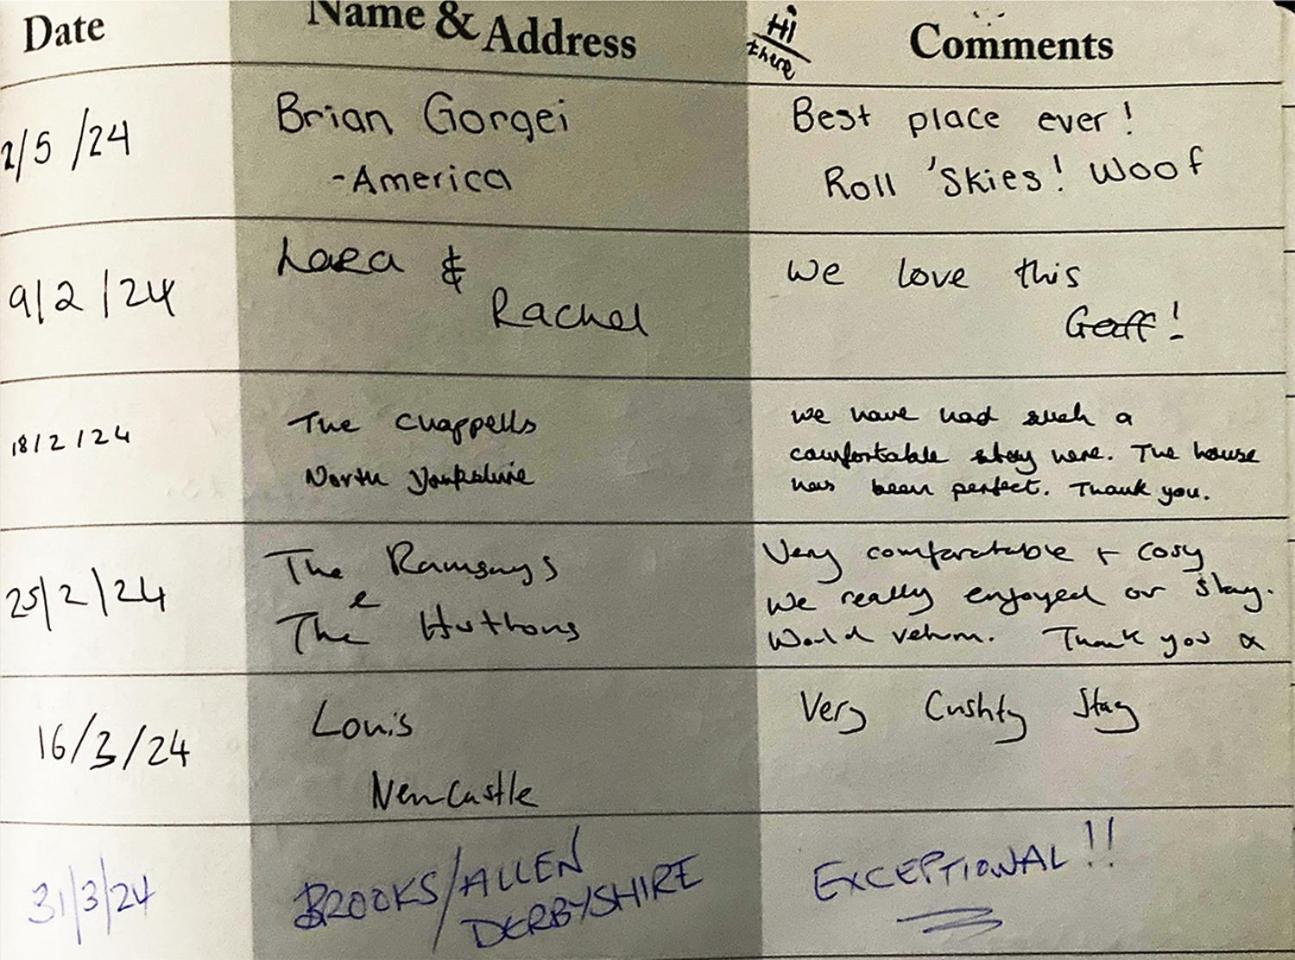 Date Name & Address Hi there Comments
2/5/24 Brian Gorgei Best place ever!
-America Roll 'Skies! Woof
9/2/24 Lara & We love this
Rachel Gaff!
18/2/24 The Chappells We have had such a
North Yorkshire comfortable stay here. The house
has been perfect. Thank you.
25/2/24 The Ramsays Very comfortable + cosy
We really enjoyed our stay.
The Huttons Would return. Thank you
16/3/24 Louis Very Cushty Stay
Newcastle
31/3/24 BROOKS/ALLEN EXCEPTIONAL!!
DERBYSHIRE